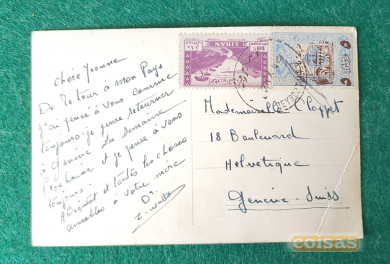 Chère Yvonne
De Retour à mon Pays
j'ai pensé à vous comme
toujours. je pense retourner
à Genève la semaine
prochaine et je pense à vous
toujours.
A Bientôt et toutes les choses
aimables à votre mère
Dr
LIBAN
Mademoiselle Choppet
18 Boulevard
Helvetique
Genève - Suiss
coisas